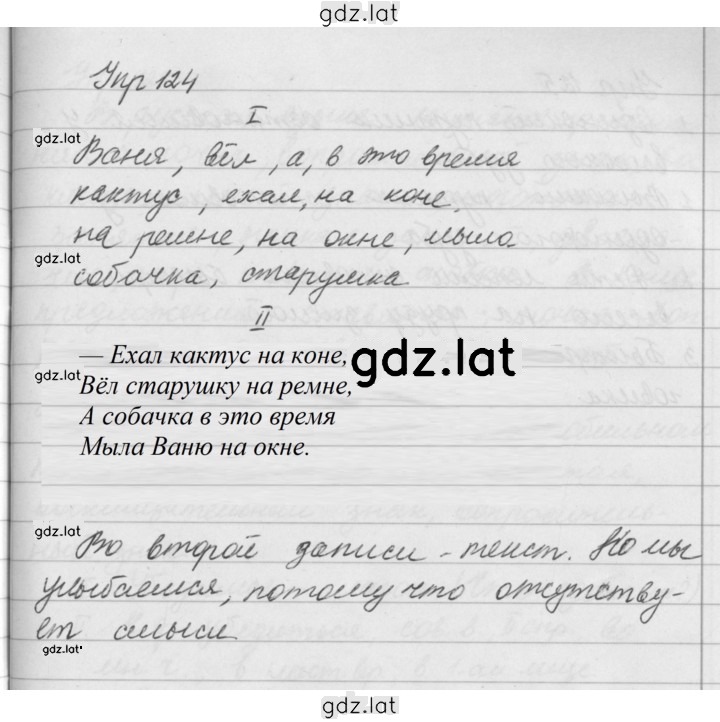 gdz.lat
Упр 124
I
gdz.lat
Ваня, вёл, а, в это время
кактус, ехал, на коне,
на ремне, на окне, мыла
gdz.lat
собачка, старушка
II
— Ехал кактус на коне,
gdz.lat
gdz.lat
Вёл старушку на ремне,
А собачка в это время
Мыла Ваню на окне.
gdz.lat
Во второй записи - текст. Но мы
улыбаемся, потому что отсутству-
ет смысл
gdz.lat
gdz.lat